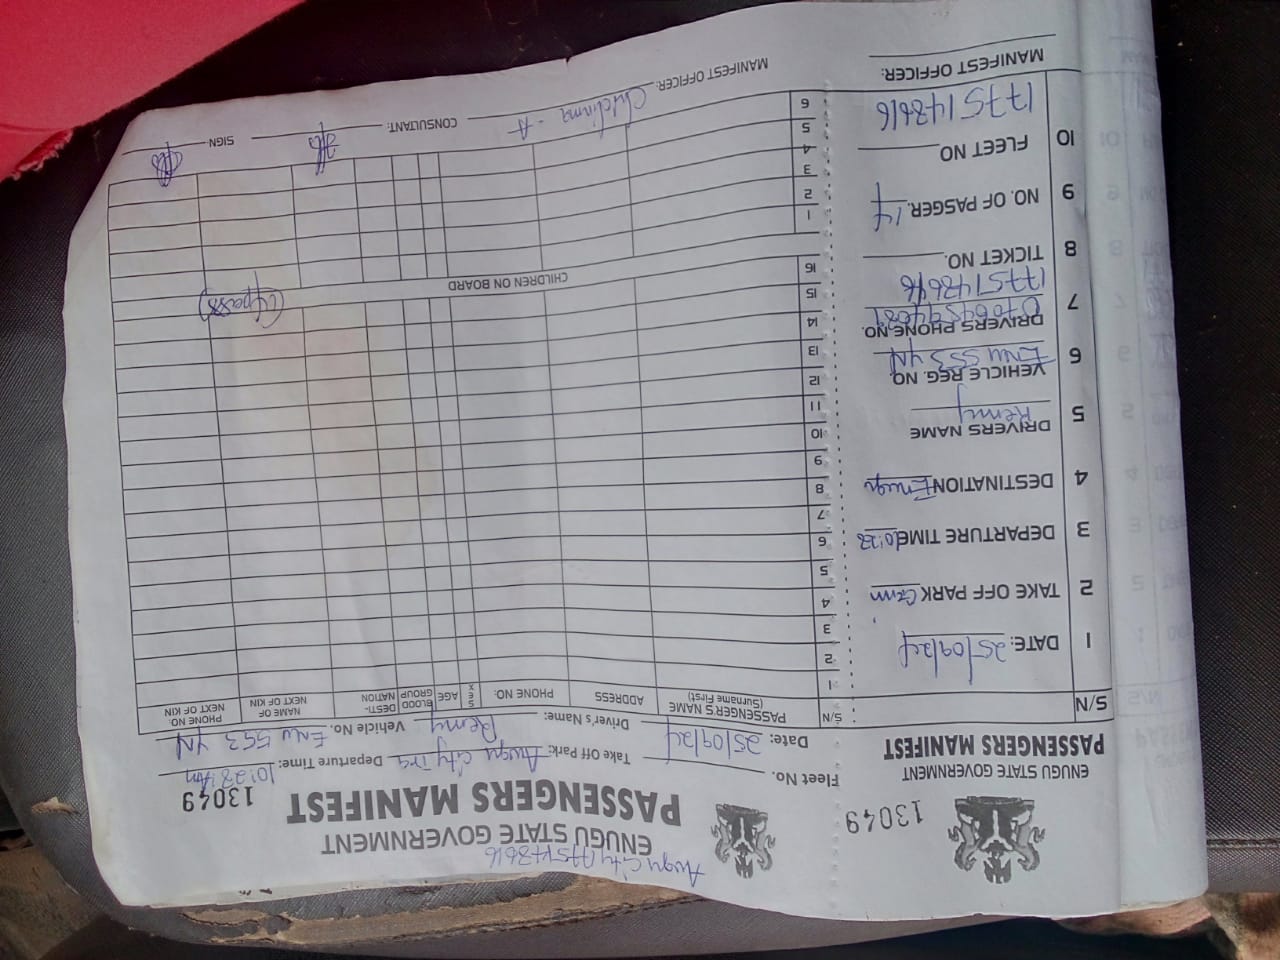 ENUGU STATE GOVERNMENT
PASSENGERS MANIFEST
13049
S/N
1 DATE: 25/09/24
2 TAKE OFF PARK
3 DEPARTURE TIME 10:28
4 DESTINATION Enugu
5 DRIVERS NAME Remy
6 VEHICLE REG. NO. Enu 553 YN
7 DRIVERS PHONE NO.
1775148616
8 TICKET NO.
9 NO. OF PASGER. 14
10 FLEET NO
1775148616
MANIFEST OFFICER:
Awgu City 1775148616
ENUGU STATE GOVERNMENT
PASSENGERS MANIFEST
13049
Fleet No. Take Off Park: Awgu City Departure Time: 10:28 Am
Date: 25/09/24 Driver's Name: Remy Vehicle No. Enu 553 YN
S/N PASSENGER'S NAME (Surname First) ADDRESS PHONE NO: SEX AGE BLOOD GROUP DESTI-NATION NAME OF NEXT OF KIN PHONE NO. NEXT OF KIN
1
2
3
4
5
6
7
8
9
10
11
12
13
14
15 (14pass)
16
CHILDREN ON BOARD
1
2
3
4
5
6
MANIFEST OFFICER: CONSULTANT: SIGN